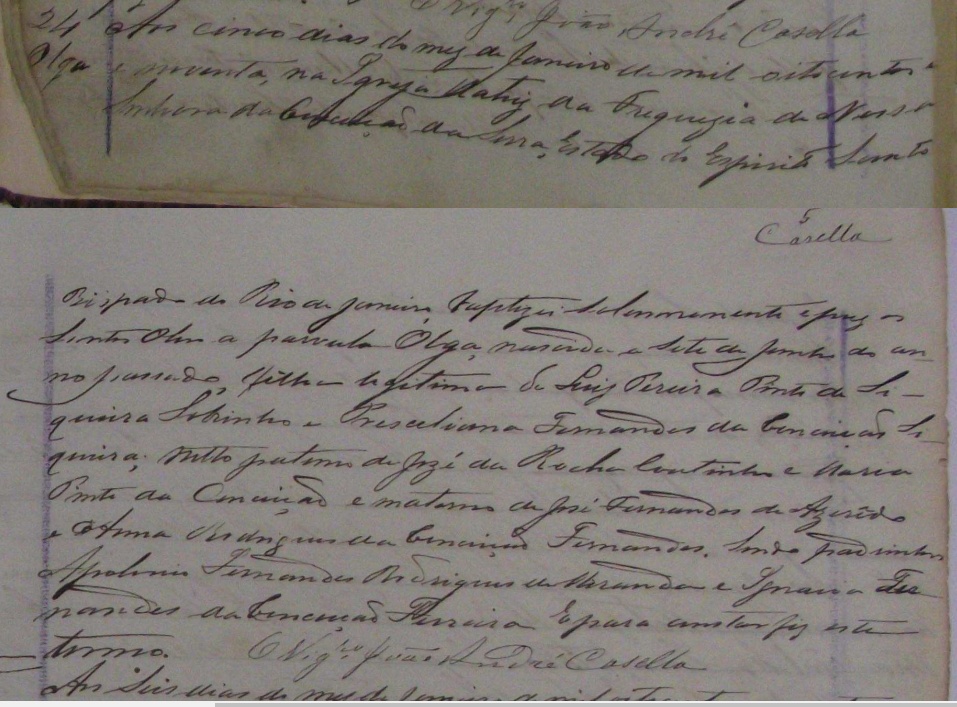 O Vigr.º João André Casella
24 Aos cinco dias do mez de Janeiro de mil oitocentos e
Olga noventa, na Igreja Matriz da Freguezia de Nossa
Senhora da Conceição da Serra, Estado do Espirito Santo
Casella
Bispado do Rio de Janeiro, baptizei solemnemente e puz os
Santos Oleos a parvula Olga, nascida a sete de Junho do an
no passado, filha legitima de Luiz Pereira Pinto de Si-
queira Sobrinho e Presceliana Fernandes da Conceição Si-
queira; netta paterna de José da Rocha Coutinho e Maria
Pinto da Conceição e materna de José Fernandes de Azerêdo
e Anna Rodrigues da Conceição Fernandes. Sendo padrinhos
Apolinio Fernandes Rodrigues de Miranda e Ignacia Fer
nandes da Conceição Ferreira E para constar fiz este
termo. O Vigr.º João André Casella
Aos Seis dias do mez de Janeiro de mil